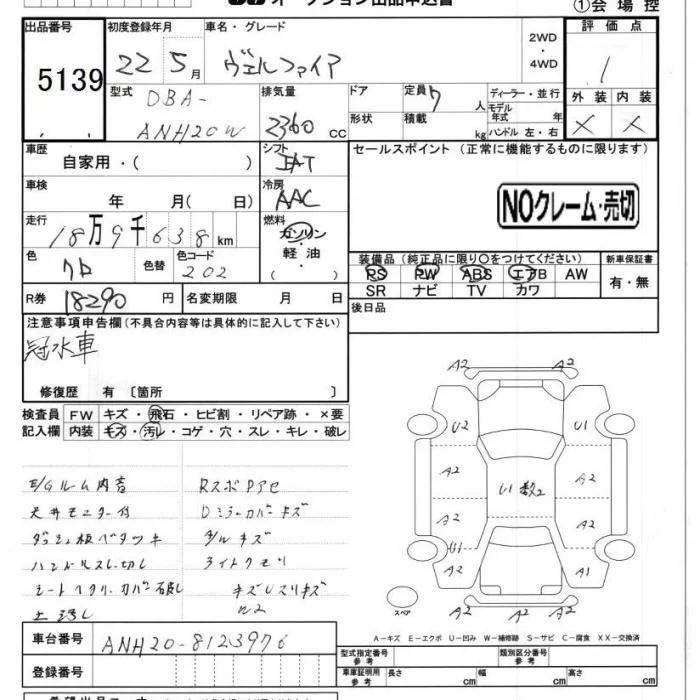 ①会場控
出品番号
5139
初度登録年月
22 5月
車名・グレード
ヴェルファイア
2WD
・
4WD
評価点
1
外装 内装
× ×
型式
DBA-
ANH20W
排気量
2360 cc
ドア
形状
定員 7 人
積載 kg
ディーラー・並行
モデル
年式 年
ハンドル 左・右
車歴
自家用・( )
シフト
IAT
セールスポイント (正常に機能するものに限ります)
NOクレーム・売切
車検
年 月( 日)
冷房
AAC
走行
18万9千638km
燃料
ガソリン
・
軽油
( )
色
クロ
色替
色コード
202
装備品 (純正品に限り○をつけてください)
PS PW ABS エアB AW
SR ナビ TV カワ
新車保証書
有・無
R券 18290 円
名変期限 月 日
後日品
注意事項申告欄 (不具合内容等は具体的に記入して下さい)
冠水車
修復歴 有 〔箇所 〕
検査員 FW キズ・飛石・ヒビ割・リペア跡・×要
記入欄 内装 キズ・汚レ・コゲ・穴・スレ・キレ・破レ
E/Gルーム内音
天井モニター付
ダッシュ板ベタツキ
ハンドルスレ切レ
RスポPアセ
Dミラーカバーキズ
ライトクモリ
A2 A2
U2 U2
A2 A2
U1 数2
A2 A2
U1
A2 A1
スペア
A2 A2
A-キズ E-エクボ U-凹み W-補修跡 S-サビ C-腐食 XX-交換済
車台番号 ANH20-8123976
登録番号
型式指定番号
参考
類別区分番号
参考
車庫証明用
参考
長さ cm 幅 cm 高さ cm